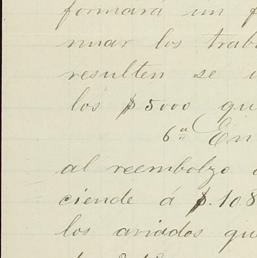 formará un f
nuar los trab
resulten se
los $5000 qu
6ª En
al reembolzo
ciende á $.108
los aviados qu